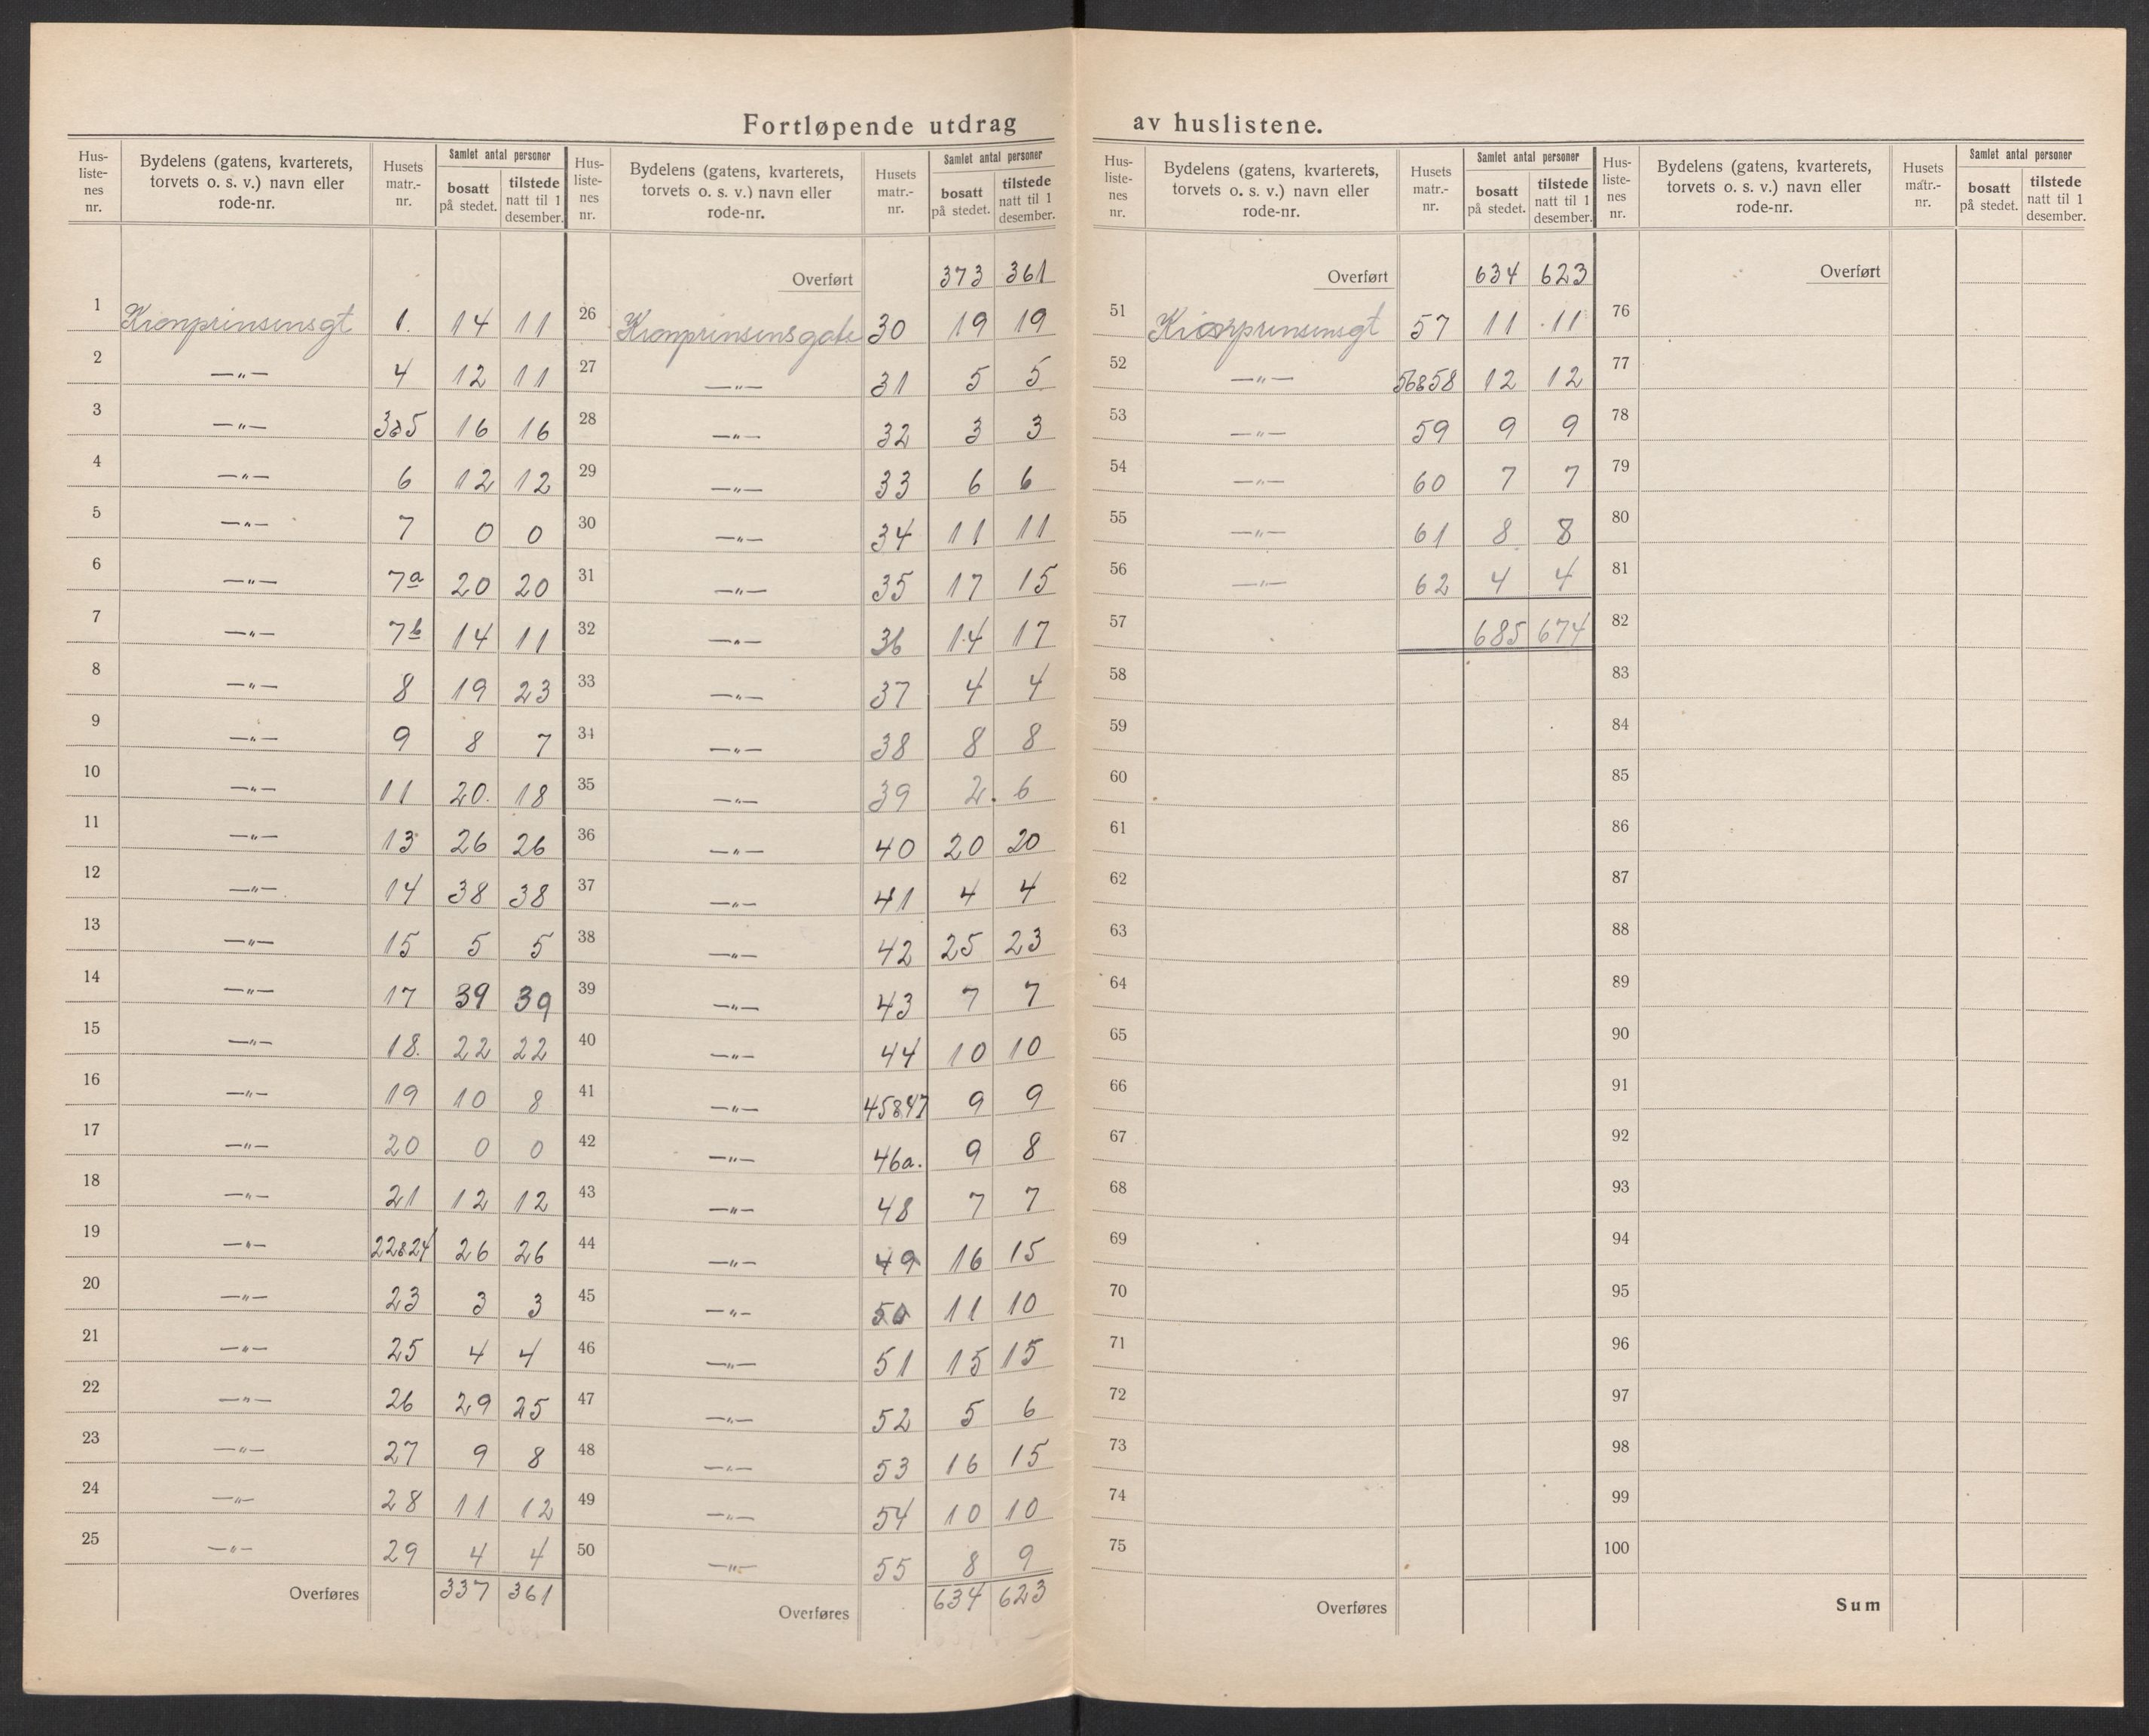 Fortløpende utdrag av huslistene.
Hus-listenes nr. | Bydelens (gatens, kvarterets, torvets o. s. v.) navn eller rode-nr. | Husets matr.-nr. | Samlet antal personer bosatt på stedet. | tilstede natt til 1 desember.
1 Kronprinsensgt 1. 14 11
2 —"— 4 12 11
3 —"— 3&5 16 16
4 —"— 6 12 12
5 —"— 7 0 0
6 —"— 7a 20 20
7 —"— 7b 14 11
8 —"— 8 19 23
9 —"— 9 8 7
10 —"— 11 20. 18
11 —"— 13 26 26
12 —"— 14 38 38
13 —"— 15 5 5
14 —"— 17 39 39
15 —"— 18. 22 22
16 —"— 19 10 8
17 —"— 20 0 0
18 —"— 21 12 12
19 —"— 22&24 26 26
20 —"— 23 3 3
21 —"— 25 4 4
22 —"— 26 29 25
23 —"— 27 9 8
24 —"— 28 11 12
25 —"— 29 4 4
Overføres 337 361
Hus-listenes nr. | Bydelens (gatens, kvarterets, torvets o. s. v.) navn eller rode-nr. | Husets matr.-nr. | Samlet antal personer bosatt på stedet. | tilstede natt til 1 desember.
Overført 373 361
26 Kronprinsensgate 30 19 19
27 —"— 31 5 5
28 —"— 32 3 3
29 —"— 33 6 6
30 —"— 34 11 11
31 —"— 35 17 15
32 —"— 36 14 17
33 —"— 37 4 4
34 —"— 38 8 8
35 —"— 39 2. 6
36 —"— 40 20 20
37 —"— 41 4 4
38 —"— 42 25 23
39 —"— 43 7 7
40 —"— 44 10 10
41 —"— 45&47 9 9
42 —"— 46a. 9 8
43 —"— 48 7 7
44 —"— 49 16 15
45 —"— 50 11 10
46 —"— 51 15 15
47 —"— 52 5 6
48 —"— 53 16 15
49 —"— 54 10 10
50 —"— 55 8 9
Overføres 634 623
Hus-listenes nr. | Bydelens (gatens, kvarterets, torvets o. s. v.) navn eller rode-nr. | Husets matr.-nr. | Samlet antal personer bosatt på stedet. | tilstede natt til 1 desember.
Overført 634 623
51 Kronprinsensgt 57 11 11
52 —"— 56&58 12 12
53 —"— 59 9 9
54 —"— 60 7 7
55 —"— 61 8 8
56 —"— 62 4 4
57 685 674
58
59
60
61
62
63
64
65
66
67
68
69
70
71
72
73
74
75
Overføres
Hus-listenes nr. | Bydelens (gatens, kvarterets, torvets o. s. v.) navn eller rode-nr. | Husets matr.-nr. | Samlet antal personer bosatt på stedet. | tilstede natt til 1 desember.
Overført
76
77
78
79
80
81
82
83
84
85
86
87
88
89
90
91
92
93
94
95
96
97
98
99
100
Sum